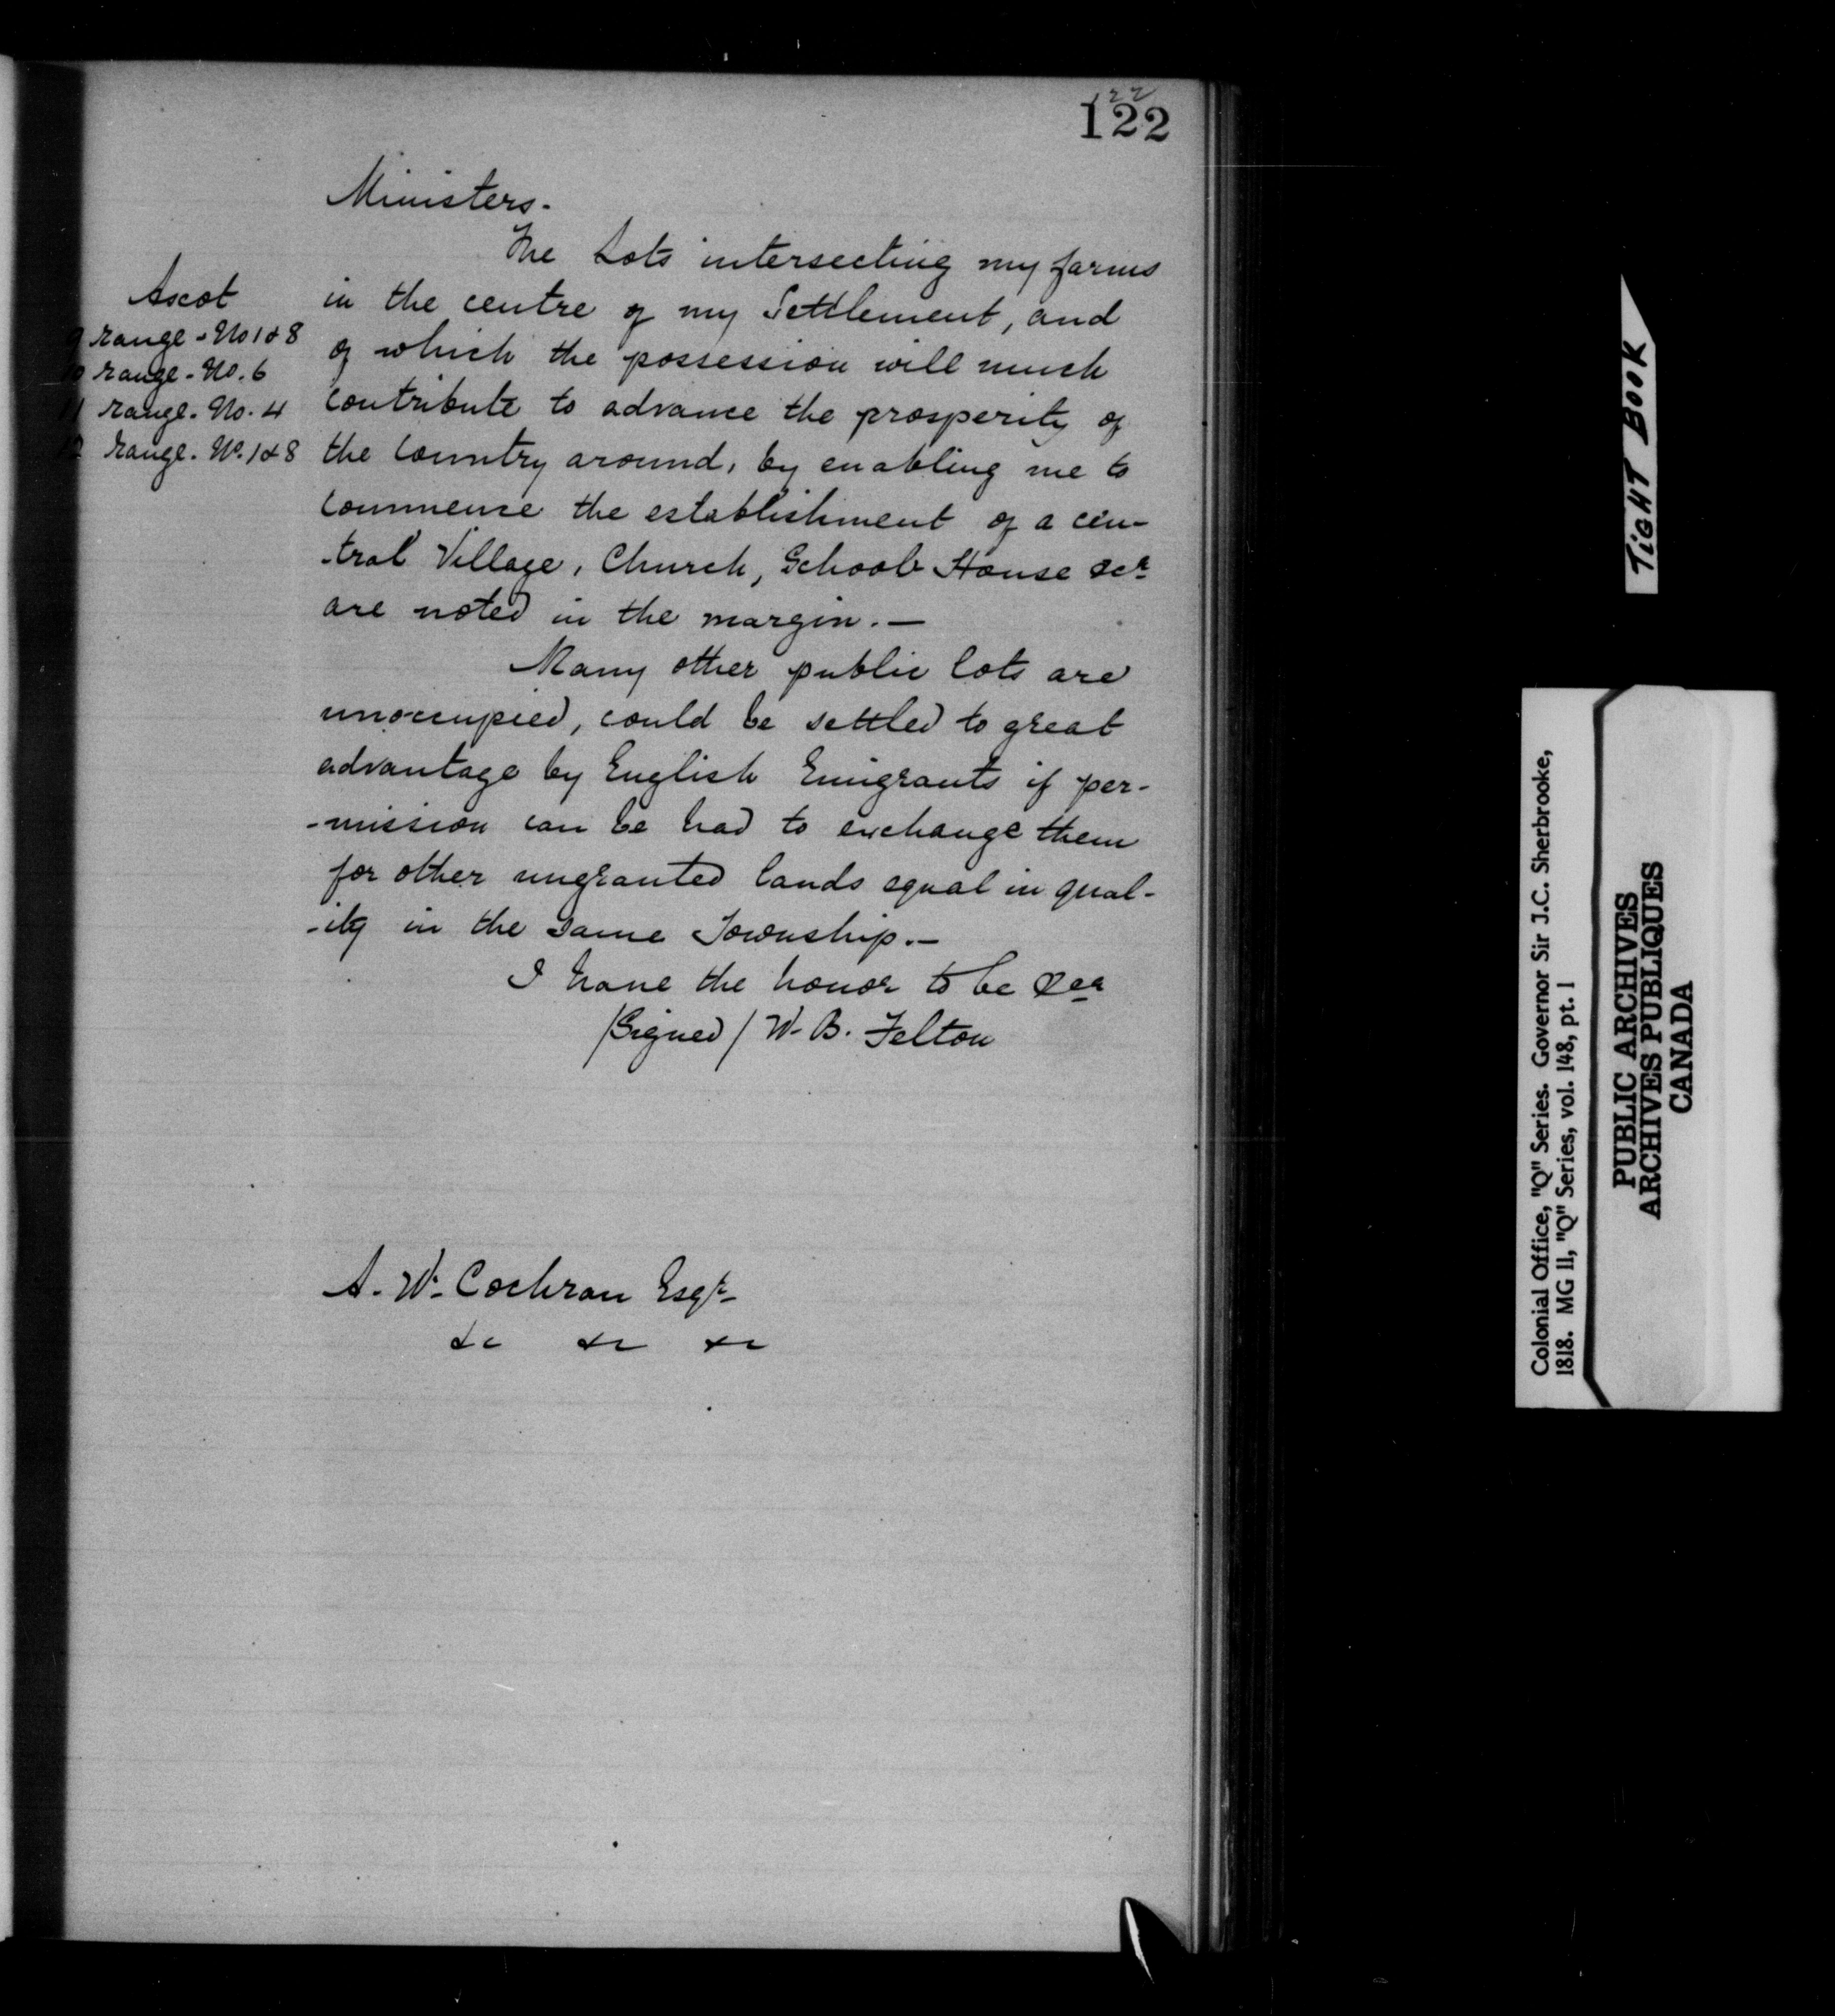 122
122
Ministers.
The Lots intersecting my farms
in the centre of my Settlement, and
of which the possession will much
contribute to advance the prosperity of
the Country around, by enabling me to
commence the establishment of a cen-
-tral Village, Church, School House &ca
are noted in the margin.—
Ascot
9 range - No 1 & 8
10 range - No. 6
11 range. No. 4
12 range. No. 1 & 8
Many other public lots are
unoccupied, could be settled to great
advantage by English Emigrants if per-
-mission can be had to exchange them
for other ungranted lands equal in qual-
-ity in the same Township.—
I have the honor to be &ca
/Signed/ W. B. Felton
A. W. Cochran Esqr
&c &c &c
TIGHT BOOK
Colonial Office, "Q" Series. Governor Sir J.C. Sherbrooke,
1818. MG 11, "Q" Series, vol. 148, pt. 1
PUBLIC ARCHIVES
ARCHIVES PUBLIQUES
CANADA